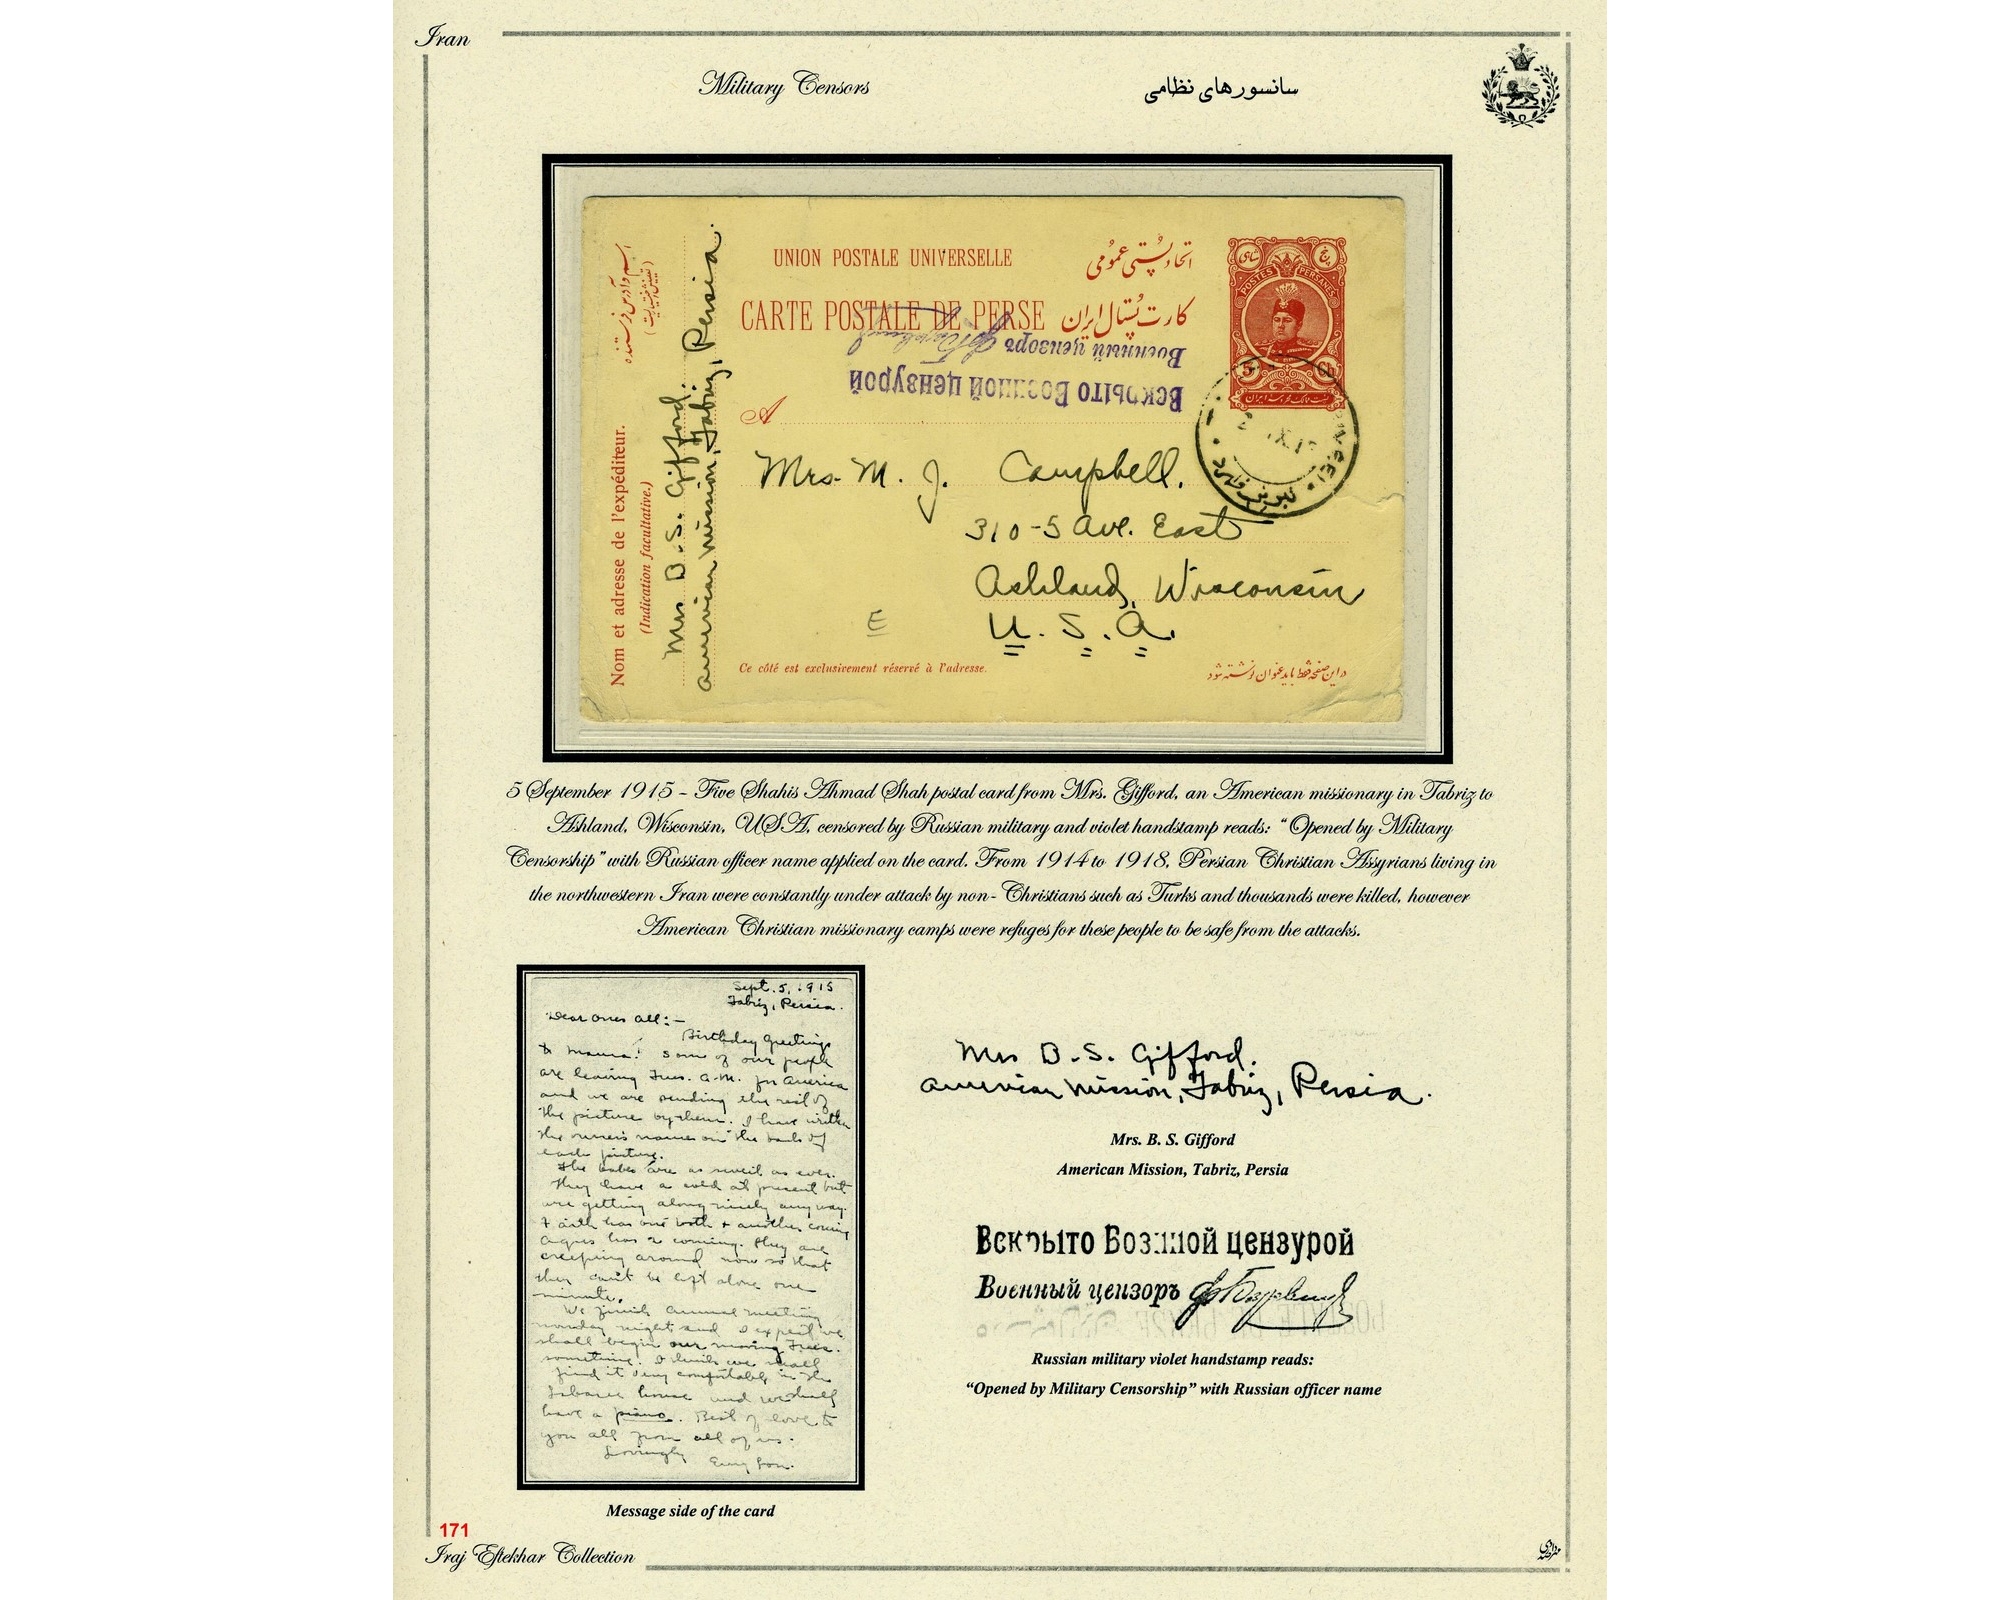 Iran
Military Censors
سانسورهای نظامی
UNION POSTALE UNIVERSELLE
اتحاد پستی عمومی
CARTE POSTALE DE PERSE
کارت پستال ایران
Военный цензоръ
Вскрыто Военной цензурой
POSTES PERSANES
پنج
شاهی
5
Ch
A
Mrs. M. J. Campbell.
310-5 Ave. East
Ashland, Wisconsin
U. S. A.
E
Ce côté est exclusivement réservé à l'adresse.
در این صفحه فقط باید عنوان نوشته شود
Nom et adresse de l'expéditeur.
(Indication facultative.)
اسم و آدرس فرستنده
Mrs B. S. Gifford.
American Mission, Tabriz, Persia.
5 September 1915 - Five Shahis Ahmad Shah postal card from Mrs. Gifford, an American missionary in Tabriz to
Ashland, Wisconsin, USA, censored by Russian military and violet handstamp reads: “Opened by Military
Censorship” with Russian officer name applied on the card. From 1914 to 1918, Persian Christian Assyrians living in
the northwestern Iran were constantly under attack by non-Christians such as Turks and thousands were killed, however
American Christian missionary camps were refuges for these people to be safe from the attacks.
Sept. 5, 1915
Tabriz, Persia.
Dear Ones all:-
Birthday Greetings
to Mama! Some of our people
are leaving Tues. A.M. for America
and we are sending the rest of
the picture by them. I have written
the names on the back of
each picture.
The babes are as sweet as ever.
They have a cold at present but
are getting along nicely any way.
Faith has one tooth + another coming
Agnes has 2 coming. They are
creeping around now so that
they can't be left alone one
minute.
We finish annual meeting
Monday night and I expect we
shall begin our moving Tues.
something. I think we shall
find it very comfortable in the
house and we shall
have a piano. Best of love to
you all from all of us.
Lovingly
Mrs B. S. Gifford.
American Mission, Tabriz, Persia.
Mrs. B. S. Gifford
American Mission, Tabriz, Persia
Вскрыто Военной цензурой
Военный цензоръ
Russian military violet handstamp reads:
“Opened by Military Censorship” with Russian officer name
Message side of the card
171
Iraj Eftekhar Collection